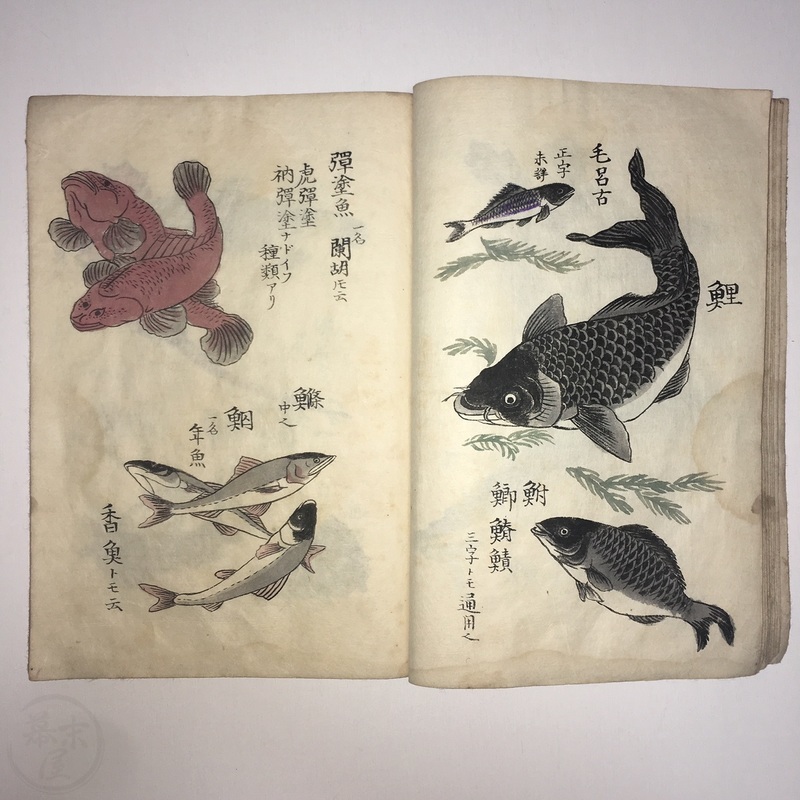 毛呂古
正字
未詳
鯉
鮒
鯽
鰿
三字トモ通用之
彈塗魚 一名 闌胡トモ云
虎彈塗
衲彈塗ナドイフ
種類アリ
鰷
中之
鮂
一名
年魚
香魚トモ云
幕末屋